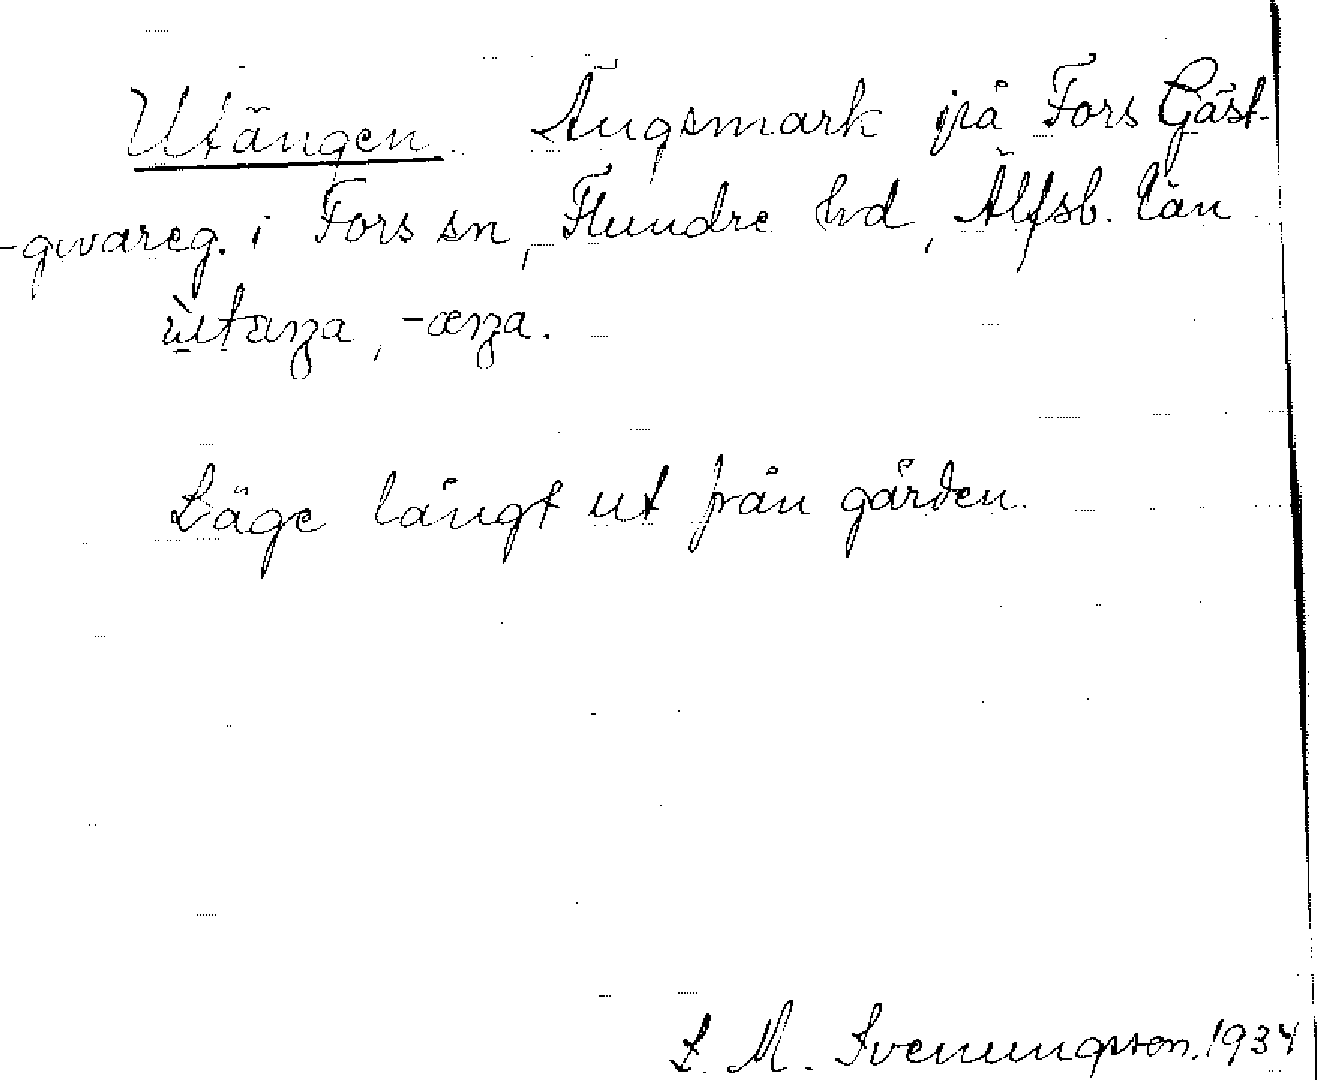 Utängen. Ängsmark på Fors Gäst-
-givareg. i Fors sn, Flundre hd, Älfsb. län
ùtæŋa, -æŋa.
Läge långt ut från gården.
L. M. Svenungsson. 1934